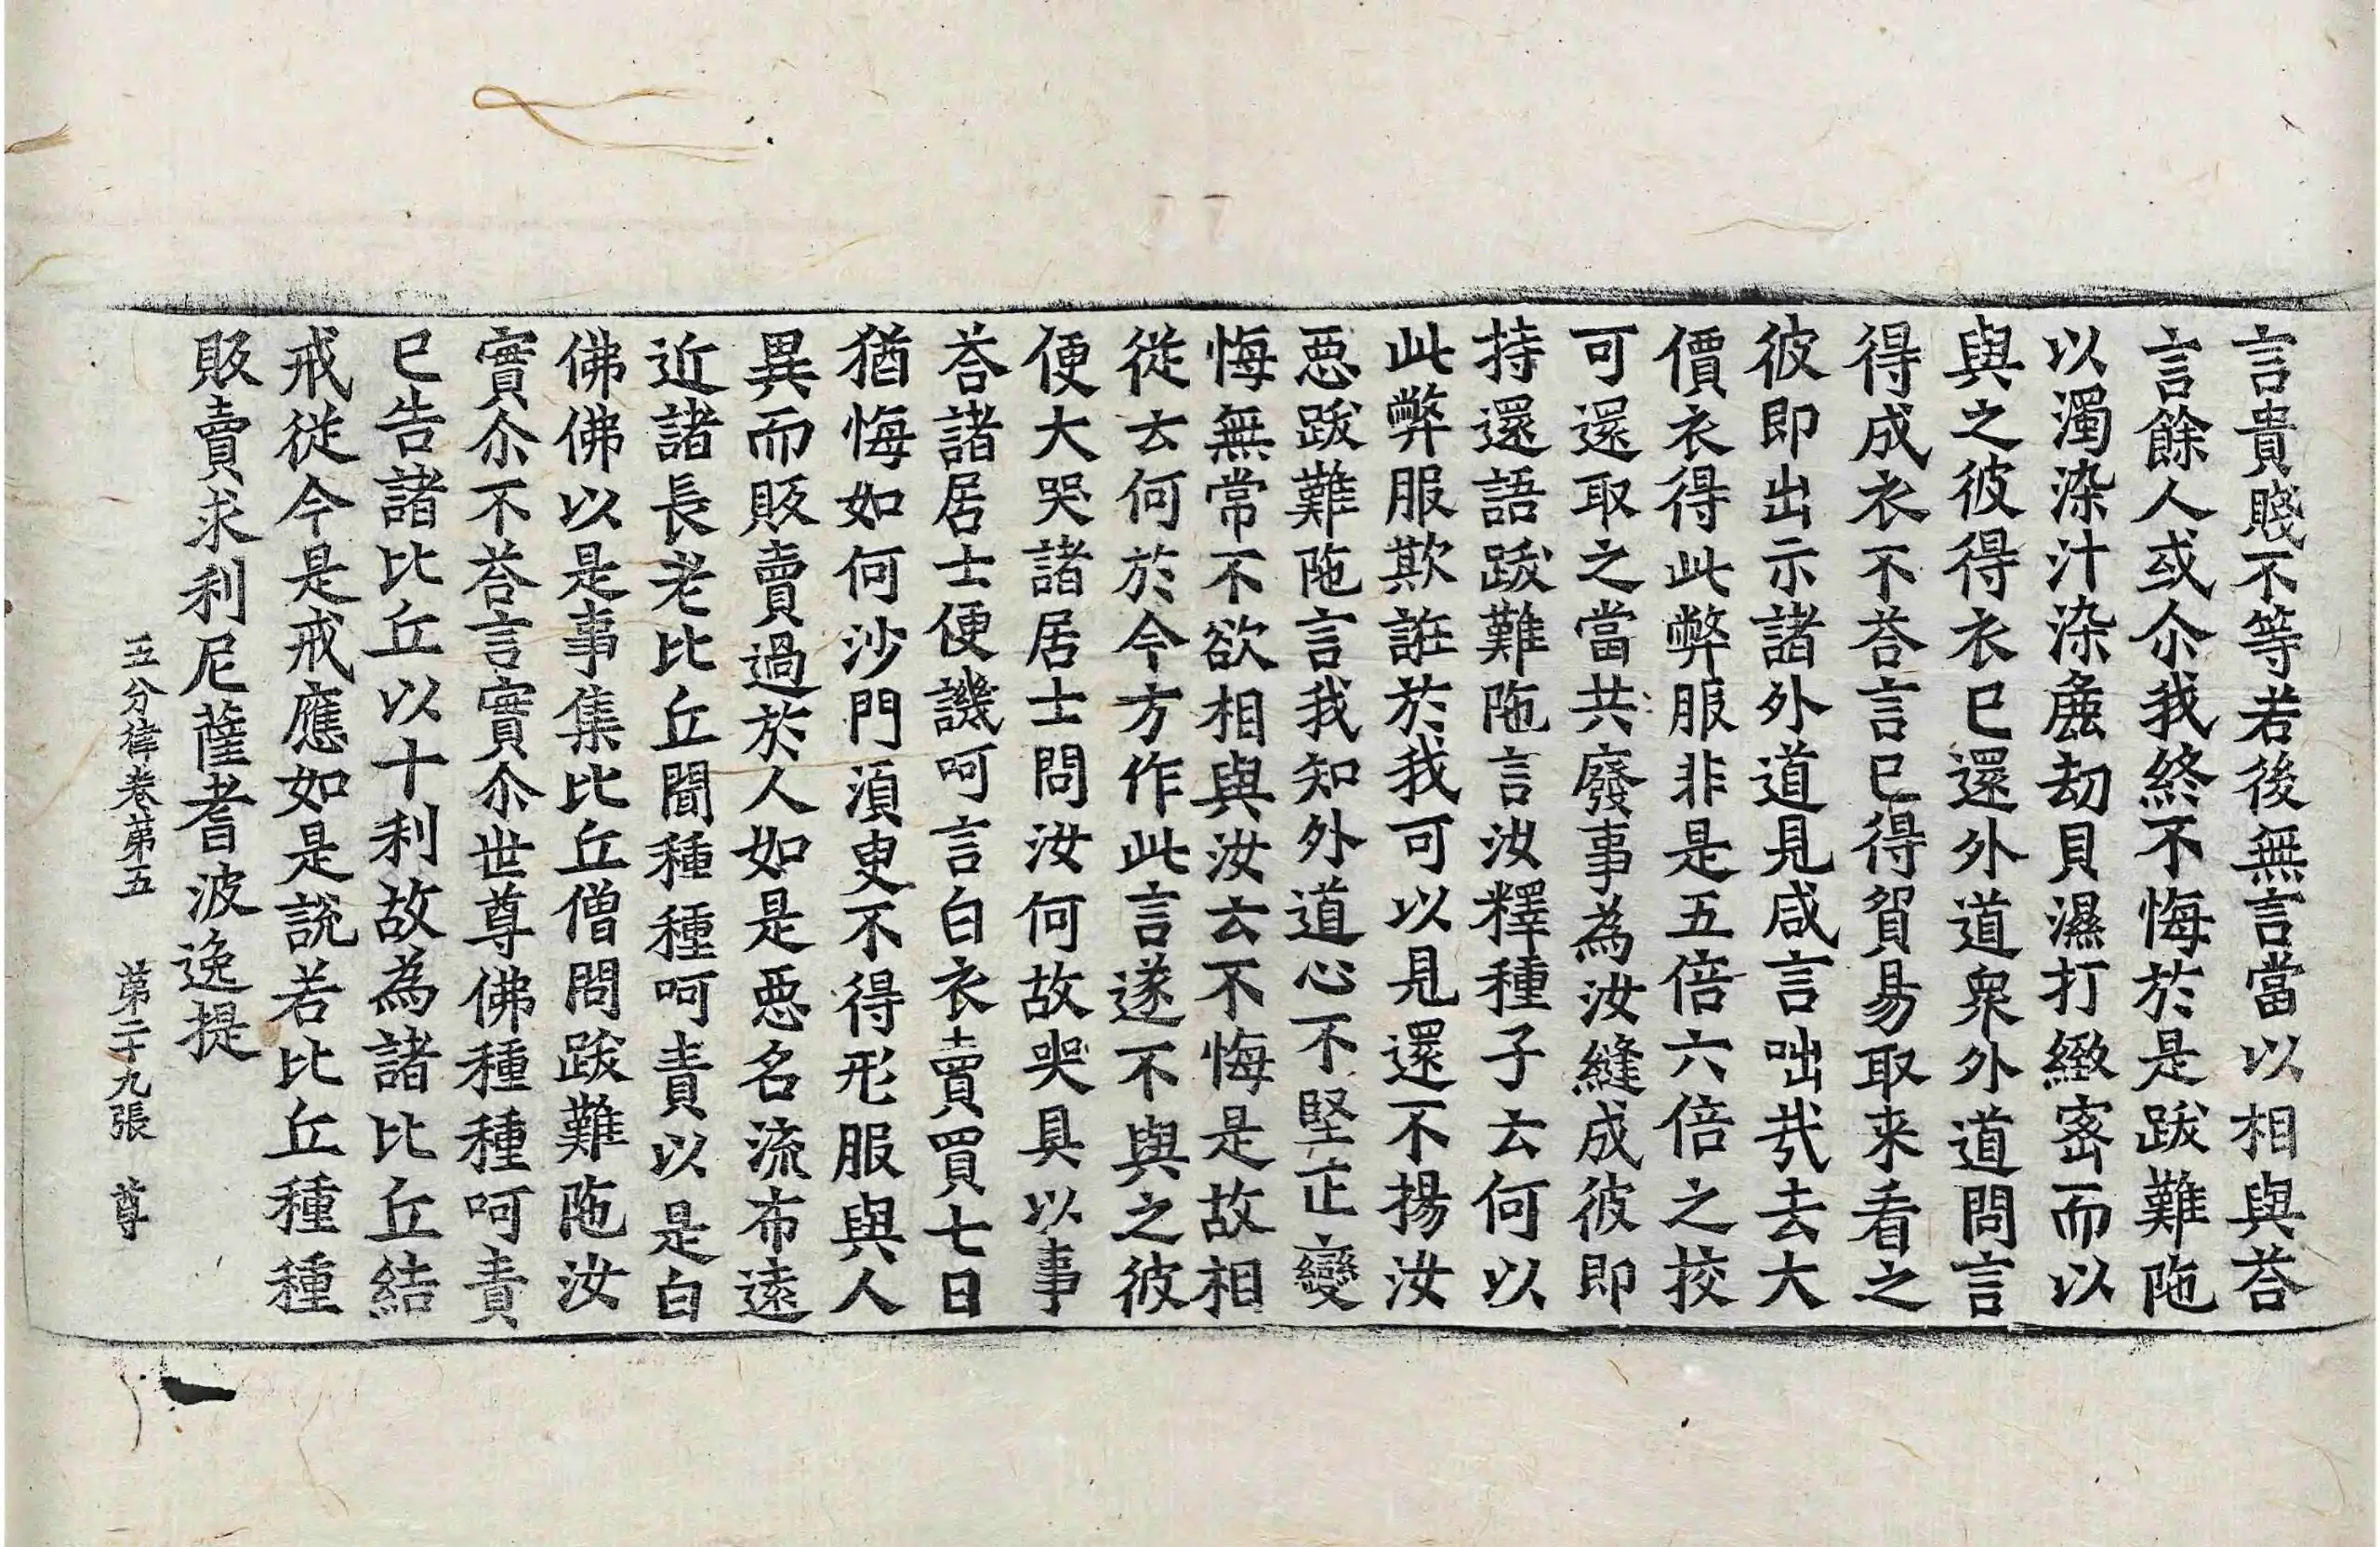 言貴賤不等若後無言當以相與荅
言餘人或尒我終不悔於是跋難陁
以濁染汁染麁劫貝濕打緻宻而以
與之彼得衣已還外道衆外道問言
得成衣不荅言已得貿易取来看之
彼即出示諸外道見咸言咄㢤去大
價衣得此弊服非是五倍六倍之挍
可還取之當共廢事為汝縫成彼即
持還語跋難陁言汝釋種子云何以
此弊服欺誑於我我可以見還不揚汝
惡跋難陁言我知外道心不堅正變
悔無常不欲相與汝云不悔是故相
從云何於今方作此言遂不與之彼
便大哭諸居士問汝何故哭具以事
荅諸居士便譏呵言白衣賣買七日
猶悔如何沙門湏臾不得形服與人
異而販賣過於人如是惡名流布遠
近諸長老比丘聞種種呵責以是白
佛佛以是事集比丘僧問跋難陁汝
實尒不荅言實尒世尊佛種種呵責
已告諸比丘以十利故為諸比丘結
戒從今是戒應如是說若比丘種種
販賣求利尼薩耆波逸提
五分律卷苐五　苐二十九張　尊